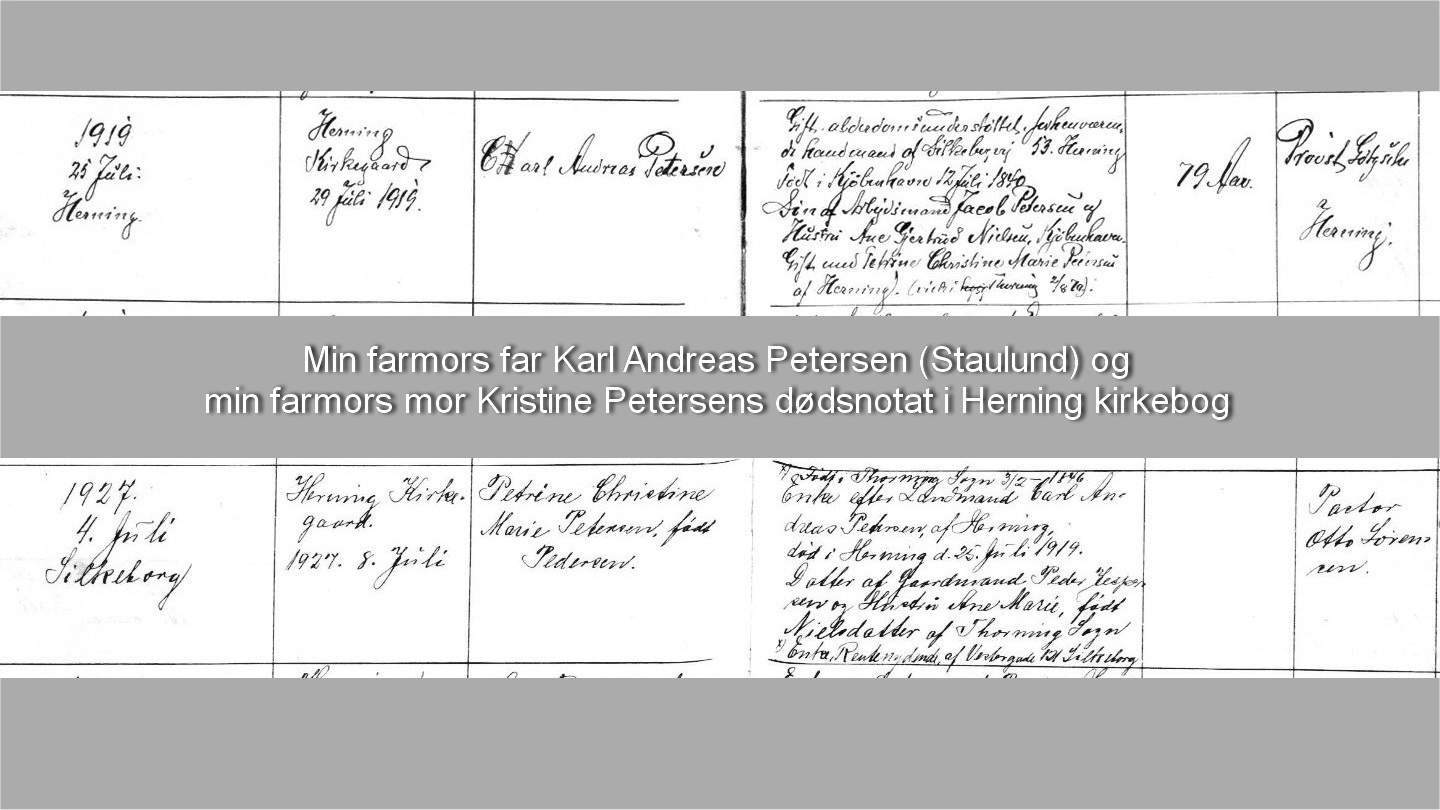 1919
25 Juli.
Herning.
Herning
Kirkegaard
29 Juli 1919.
Carl Andreas Petersen
Gift. alderdomsunderstøttet, forhenværen-
de handmand af Silkeborgvej 53. Herning
Født i Kjøbenhavn 12 Juli 1840
Søn af Arbejdsmand Jacob Petersen og
Hustru Ane Gjertrud Nielsen, Kjøbenhavn.
Gift med Petrine Christine Marie Petersen
af Herning. (viet i Thorning 2/8 79).
79 Aar.
Provst
Herning.
Min farmors far Karl Andreas Petersen (Staulund) og
min farmors mor Kristine Petersens dødsnotat i Herning kirkebog
1927.
4. Juli
Silkeborg
Herning Kirke-
gaard.
1927. 8. Juli
Petrine Christine
Marie Petersen, født
Pedersen.
x) Født i Thorning Sogn 3/2 - 1846
Enke efter Landmand Carl An-
dreas Petersen, af Herning,
død i Herning d. 25. Juli 1919.
Datter af Gaardmand Peder Jesper-
sen og Hustru Ane Marie, født
Nielsdatter af Thorning Sogn
x) Enke, Rentenydende, af Vestergade Silkeborg
Pastor
Otto Søren-
sen.